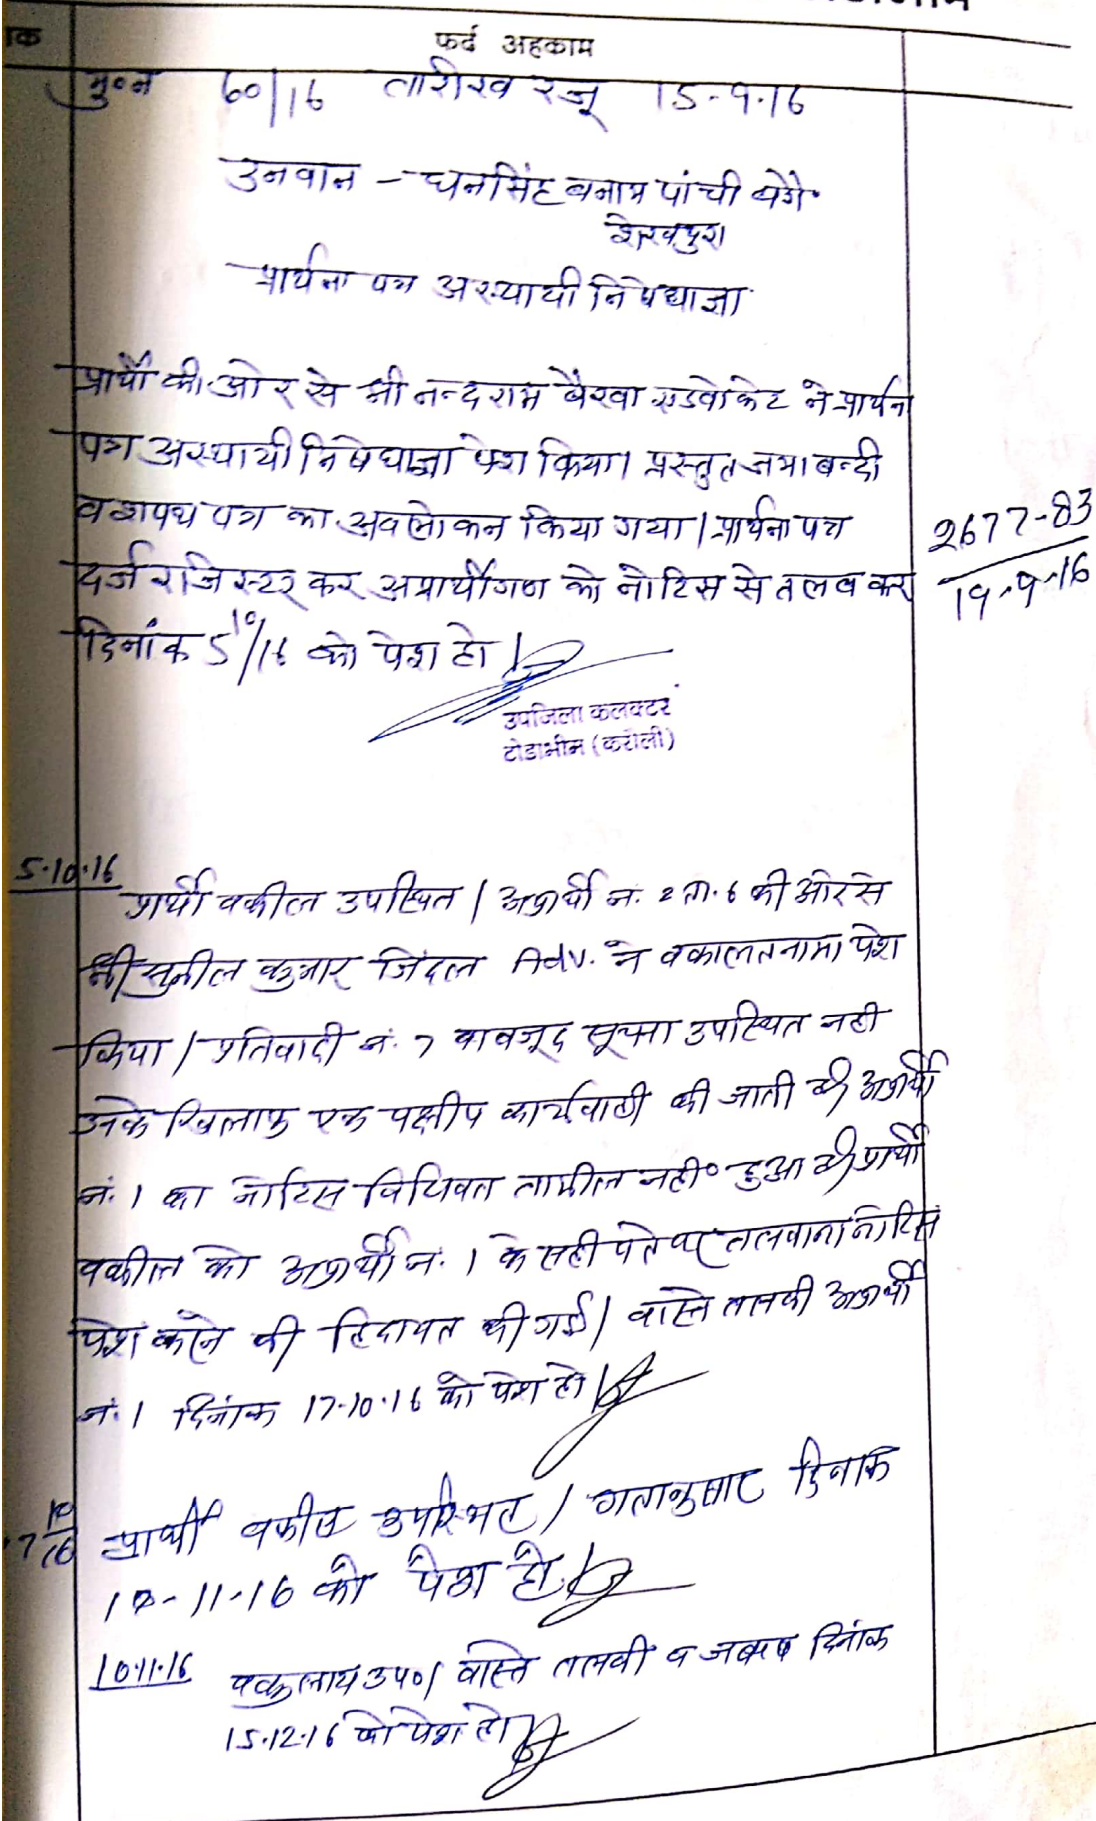 फर्द अहकाम
मु०न 60/16 तारीख रजू 15-9-16
उनवान - धनसिंह बनाम पांची वगै०
शेखपुरा
प्रार्थना पत्र अस्थायी निषेधाज्ञा
प्रार्थी की ओर से श्री नन्दराम बैरवा एडवोकेट ने प्रार्थना
पत्र अस्थायी निषेधाज्ञा पेश किया। प्रस्तुत जमाबन्दी
व शपथ पत्र का अवलोकन किया गया। प्रार्थना पत्र
दर्ज राजिस्टर कर अप्रार्थीगण को नोटिस से तलब कर
2677-83
19-9-16
दिनांक 5/10/16 को पेश हो।
उपजिला कलक्टर
टोडाभीम (करौली)
5.10.16
प्रार्थी वकील उपस्थित। अप्रार्थी नं. 2 ता. 6 की ओर से
श्री सुनील कुमार जिंदल Adv. ने वकालतनामा पेश
किया। प्रतिवादी नं. 7 बावजूद सूचना उपस्थित नही
उनके खिलाफ एक पक्षीय कार्यवाही की जाती है। अप्रार्थी
नं. 1 का नोटिस विधिवत तामील नही हुआ है। प्रार्थी
वकील को अप्रार्थी नं. 1 के सही पते पर तलवाना नोटिस
पेश करने की हिदायत की गई। वास्ते तलवी अप्रार्थी
नं. 1 दिनांक 17.10.16 को पेश हो।
प्रार्थी वकील उपस्थित। गतानुसार दिनांक
10-11-16 को पेश हो।
10.11.16
वकुलाय उप०। वास्ते तलवी व जबाब दिनांक
15.12.16 को पेश हो।